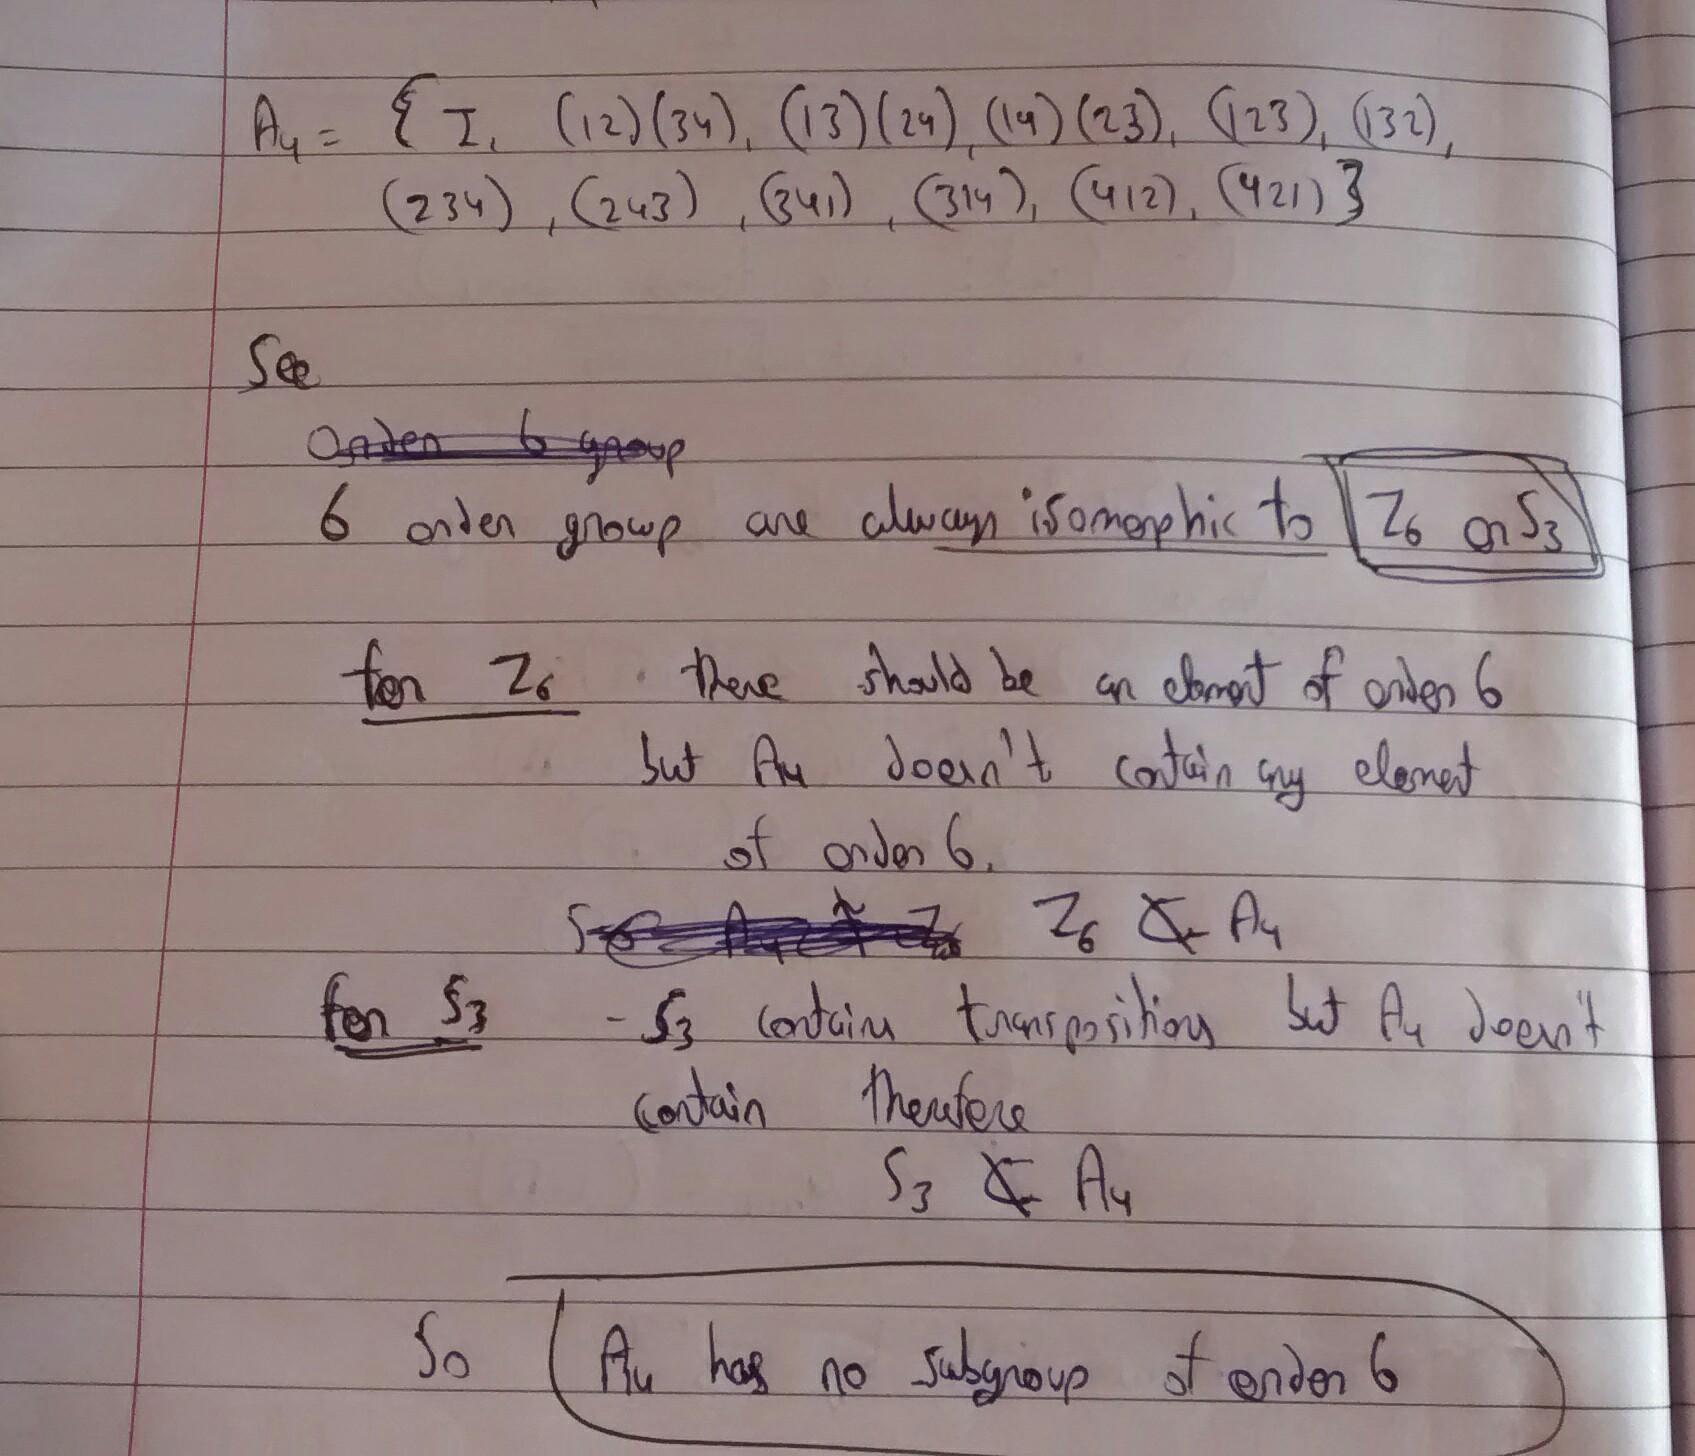 A4 = { I, (12)(34), (13)(24), (14)(23), (123), (132),
(234), (243), (341), (314), (412), (421) }
See
Order 6 group
6 order group are always isomorphic to Z6 or S3
for Z6 . there should be an element of order 6
but A4 doesn't contain any element
of order 6.
Z6 ≮ A4
for S3 - S3 contains transpositions but A4 doesn't
contain therefore
S3 ≮ A4
So A4 has no subgroup of order 6